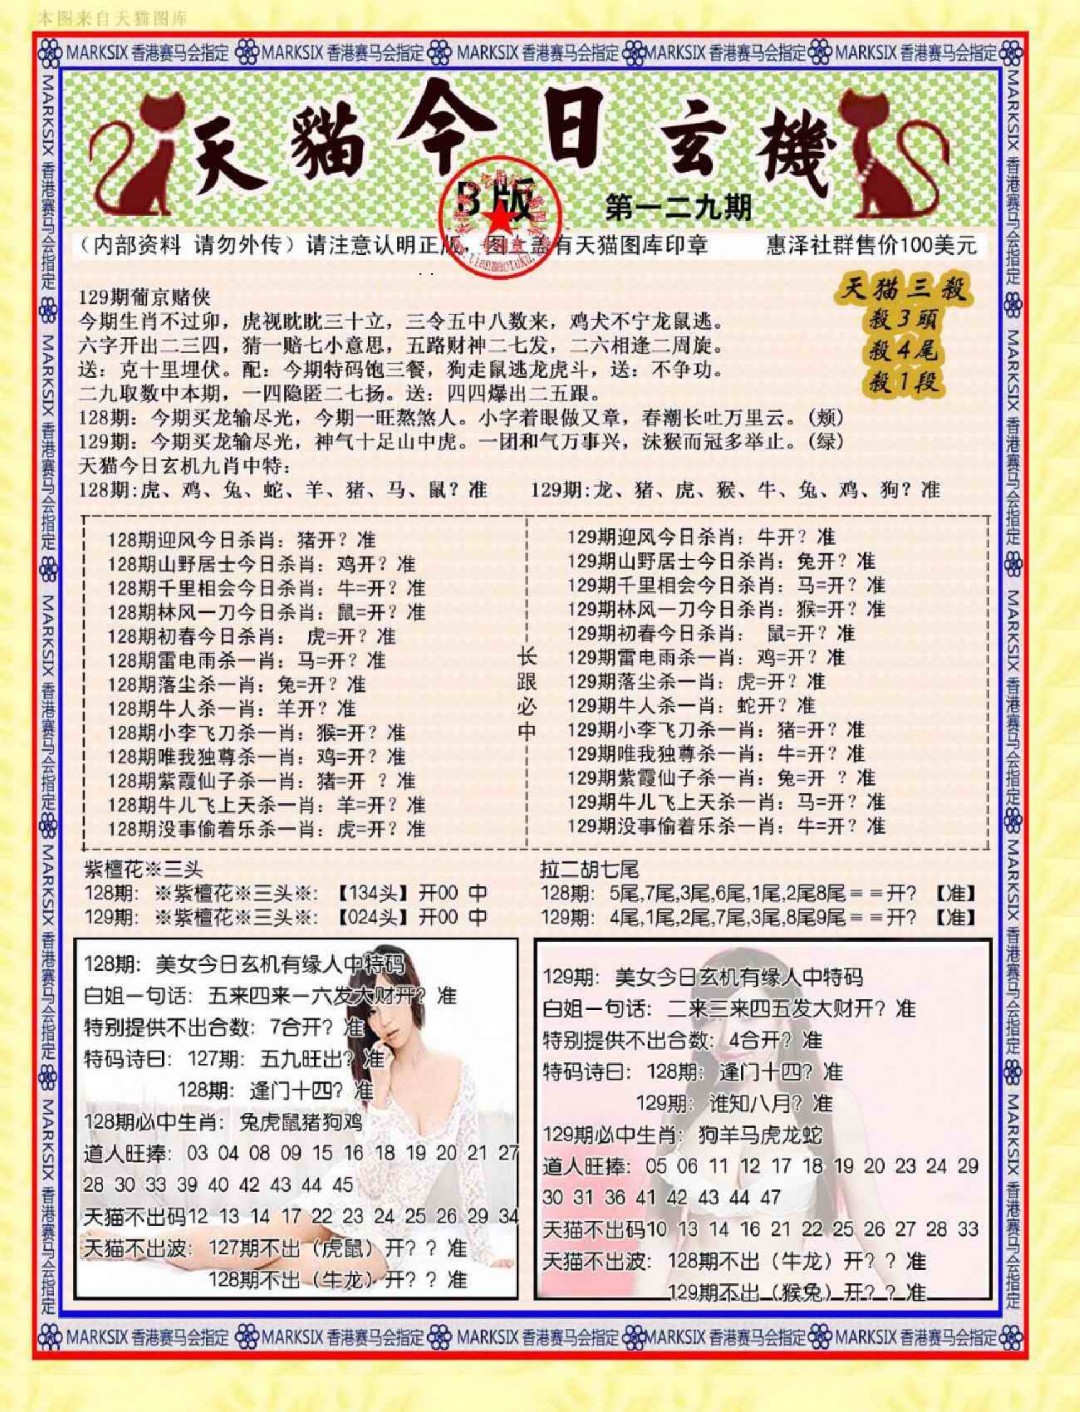 本图来自天猫图库
MARKSIX 香港赛马会指定 MARKSIX 香港赛马会指定 MARKSIX 香港赛马会指定 MARKSIX 香港赛马会指定 MARKSIX 香港赛马会指定
天貓今日玄機
B版
第一二九期
（内部资料 请勿外传）请注意认明正版，图上盖有天猫图库印章 惠泽社群售价100美元
天猫三殺
殺3頭
殺4尾
殺1段
129期葡京赌侠
今期生肖不过卯，虎视眈眈三十立，三令五申八数来，鸡犬不宁龙鼠逃。
六字开出二三四，猜一赔七小意思，五路财神二七发，二六相逢二周旋。
送：克十里埋伏。配：今期特码饱三餐，狗走鼠逃龙虎斗，送：不争功。
二九取数中本期，一四隐匿二七扬。送：四四爆出二五跟。
128期：今期买龙输尽光，今期一旺熬煞人。小字着眼做又章，春潮长吐万里云。(颊)
129期：今期买龙输尽光，神气十足山中虎。一团和气万事兴，沫猴而冠多举止。(绿)
天猫今日玄机九肖中特：
128期:虎、鸡、兔、蛇、羊、猪、马、鼠？准 129期:龙、猪、虎、猴、牛、兔、鸡、狗？准
128期迎风今日杀肖：猪开？准
128期山野居士今日杀肖：鸡开？准
128期千里相会今日杀肖：牛=开？准
128期林风一刀今日杀肖：鼠=开？准
128期初春今日杀肖： 虎=开？准
128期雷电雨杀一肖：马=开？准
128期落尘杀一肖：兔=开？准
128期牛人杀一肖：羊开？准
128期小李飞刀杀一肖：猴=开？准
128期唯我独尊杀一肖：鸡=开？准
128期紫霞仙子杀一肖：猪=开 ？准
128期牛儿飞上天杀一肖：羊=开？准
128期没事偷着乐杀一肖：虎=开？准
长跟必中
129期迎风今日杀肖：牛开？准
129期山野居士今日杀肖：兔开？准
129期千里相会今日杀肖：马=开？准
129期林风一刀今日杀肖：猴=开？准
129期初春今日杀肖： 鼠=开？准
129期雷电雨杀一肖：鸡=开？准
129期落尘杀一肖：虎=开？准
129期牛人杀一肖：蛇开？准
129期小李飞刀杀一肖：猪=开？准
129期唯我独尊杀一肖：牛=开？准
129期紫霞仙子杀一肖：兔=开 ？准
129期牛儿飞上天杀一肖：马=开？准
129期没事偷着乐杀一肖：牛=开？准
紫檀花※三头
128期：※紫檀花※三头※：【134头】开00 中
129期：※紫檀花※三头※：【024头】开00 中
拉二胡七尾
128期：5尾,7尾,3尾,6尾,1尾,2尾8尾＝＝开？【准】
129期：4尾,1尾,2尾,7尾,3尾,8尾9尾＝＝开？【准】
128期：美女今日玄机有缘人中特码
白姐一句话：五来四来一六发大财开？准
特别提供不出合数：7合开？准
特码诗曰：127期：五九旺出？准
128期：逢门十四？准
128期必中生肖：兔虎鼠猪狗鸡
道人旺捧：03 04 08 09 15 16 18 19 20 21 27
28 30 33 39 40 42 43 44 45
天猫不出码12 13 14 17 22 23 24 25 26 29 34
天猫不出波：127期不出（虎鼠）开？？准
128期不出（牛龙）开？？准
129期：美女今日玄机有缘人中特码
白姐一句话：二来三来四五发大财开？准
特别提供不出合数：4合开？准
特码诗曰：128期：逢门十四？准
129期：谁知八月？准
129期必中生肖：狗羊马虎龙蛇
道人旺捧：05 06 11 12 17 18 19 20 23 24 29
30 31 36 41 42 43 44 47
天猫不出码10 13 14 16 21 22 25 26 27 28 33
天猫不出波：128期不出（牛龙）开？？准
129期不出（猴兔）开？？准
MARKSIX 香港赛马会指定 MARKSIX 香港赛马会指定 MARKSIX 香港赛马会指定 MARKSIX 香港赛马会指定 MARKSIX 香港赛马会指定
MARKSIX 香港赛马会指定 MARKSIX 香港赛马会指定 MARKSIX 香港赛马会指定 MARKSIX 香港赛马会指定 MARKSIX 香港赛马会指定
MARKSIX 香港赛马会指定 MARKSIX 香港赛马会指定 MARKSIX 香港赛马会指定 MARKSIX 香港赛马会指定 MARKSIX 香港赛马会指定